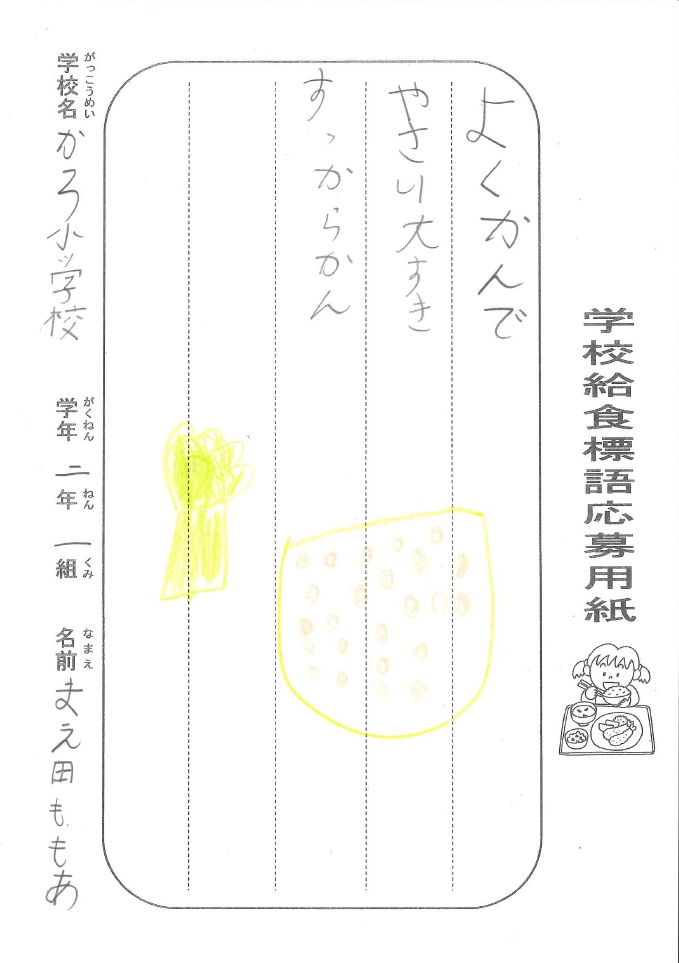 学校給食標語応募用紙
よくかんで
やさい大すき
すっからかん
学校名 がっこうめい かろ小学校
学年 がくねん 二年 ねん 一組 くみ
名前 なまえ まえ田ももあ